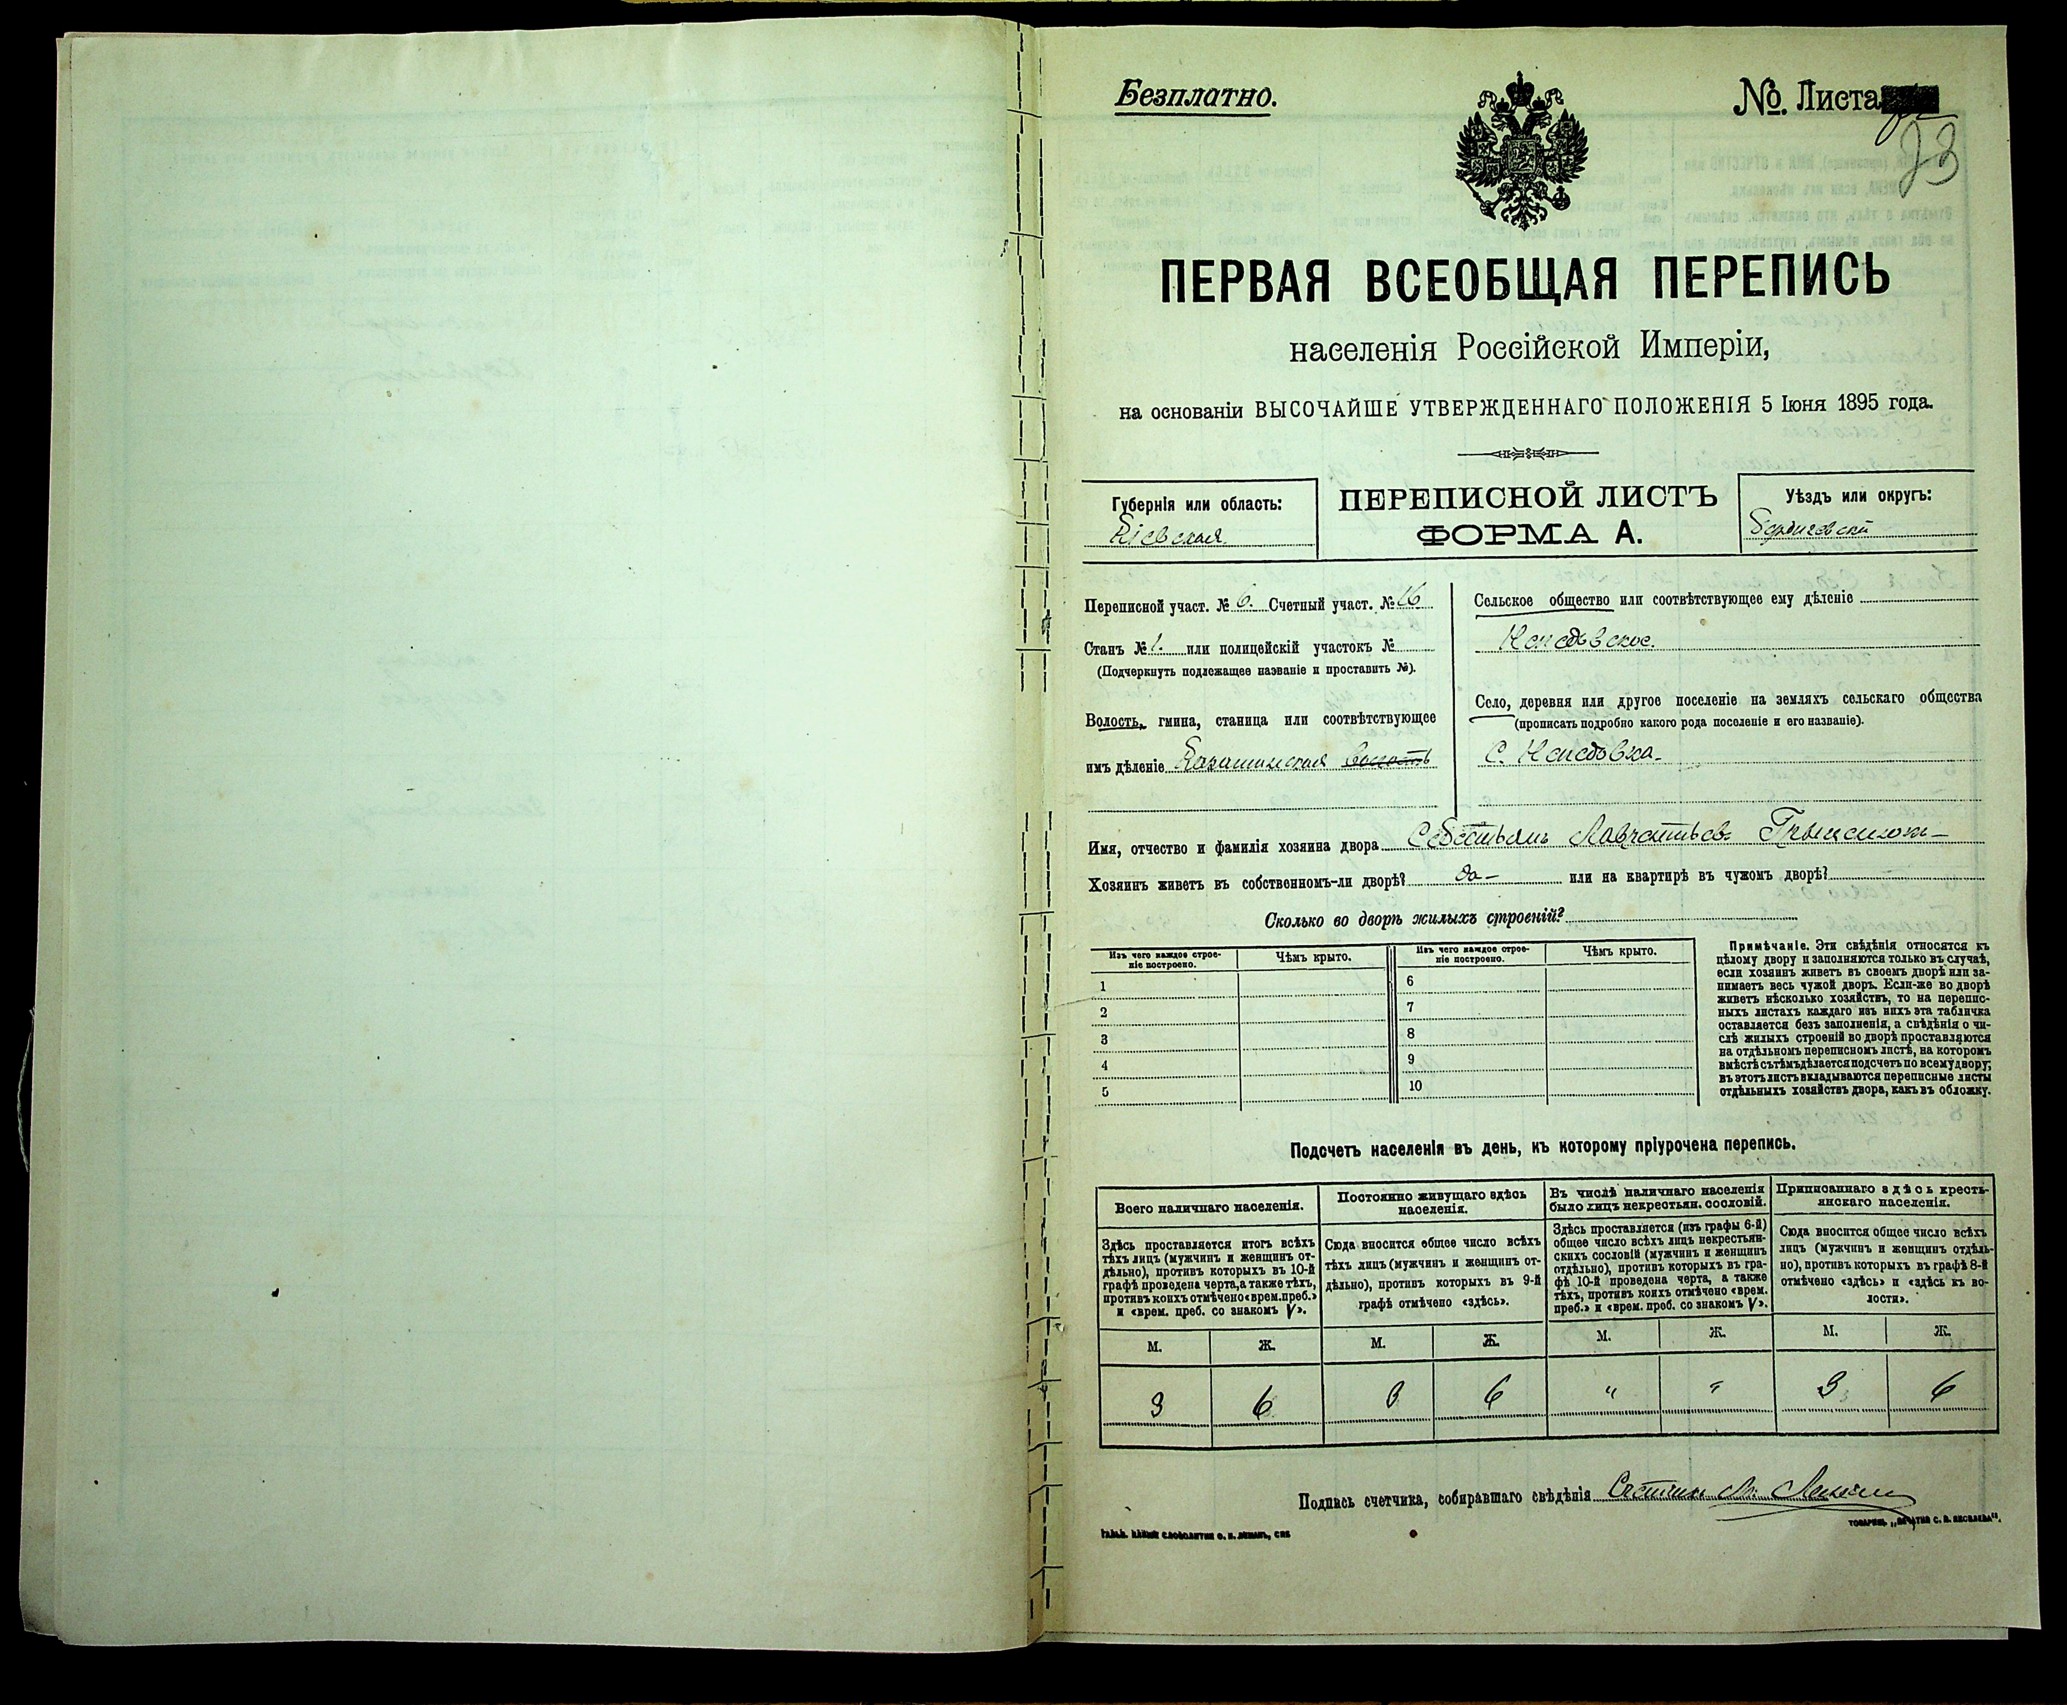 Безплатно.
№. Листа
73
ПЕРВАЯ ВСЕОБЩАЯ ПЕРЕПИСЬ
населенія Россійской Имперіи,
на основаніи ВЫСОЧАЙШЕ УТВЕРЖДЕННАГО ПОЛОЖЕНІЯ 5 Іюня 1895 года.
Губернія или область:
Кіевская.
ПЕРЕПИСНОЙ ЛИСТЪ
ФОРМА А.
Уѣздъ или округъ:
Бердичевскій
Переписной участ. № 6. Счетный участ. № 16
Станъ № 1. или полицейскій участокъ №
(Подчеркнуть подлежащее названіе и проставить №).
Волость, гмина, станица или соотвѣтствующее
имъ дѣленіе Казатинская волость
Сельское общество или соотвѣтствующее ему дѣленіе
Непедовское.
Село, деревня или другое поселеніе на земляхъ сельскаго общества
(прописать подробно какого рода поселеніе и его названіе).
С. Непедовка
Имя, отчество и фамилія хозяина двора Себастьянъ Лаврентьевъ
Хозяинъ живетъ въ собственномъ-ли дворѣ? да или на квартирѣ въ чужомъ дворѣ?
Сколько во дворѣ жилыхъ строеній?
Изъ чего каждое строе-
ніе построено.
Чѣмъ крыто.
Изъ чего каждое строе-
ніе построено.
Чѣмъ крыто.
1
2
3
4
5
6
7
8
9
10
Примѣчаніе. Эти свѣдѣнія относятся къ
цѣлому двору и заполняются только въ случаѣ,
если хозяинъ живетъ въ своемъ дворѣ или за-
нимаетъ весь чужой дворъ. Если-же во дворѣ
живетъ нѣсколько хозяйствъ, то на перепис-
ныхъ листахъ каждаго изъ нихъ эта табличка
оставляется безъ заполненія, а свѣдѣнія о чи-
слѣ жилыхъ строеній во дворѣ проставляются
на отдѣльномъ переписномъ листѣ, на которомъ
вмѣстѣ съ тѣмъ дѣлается подсчетъ по всему двору;
въ этотъ листъ вкладываются переписные листы
отдѣльныхъ хозяйствъ двора, какъ въ обложку.
Подсчетъ населенія въ день, къ которому пріурочена перепись.
Всего наличнаго населенія.
Здѣсь проставляется итогъ всѣхъ
тѣхъ лицъ (мужчинъ и женщинъ от-
дѣльно), противъ которыхъ въ 10-й
графѣ проведена черта, а также тѣхъ,
противъ коихъ отмѣчено «врем. преб.»
и «врем. преб. со знакомъ V».
Постоянно живущаго здѣсь
населенія.
Сюда вносится общее число всѣхъ
тѣхъ лицъ (мужчинъ и женщинъ от-
дѣльно), противъ которыхъ въ 9-й
графѣ отмѣчено «здѣсь».
Въ числѣ наличнаго населенія
было лицъ некрестьян. сословій.
Здѣсь проставляется (изъ графы 6-й)
общее число всѣхъ лицъ некрестьян-
скихъ сословій (мужчинъ и женщинъ
отдѣльно), противъ которыхъ въ гра-
фѣ 10-й проведена черта, а также
тѣхъ, противъ коихъ отмѣчено «врем.
преб.» и «врем. преб. со знакомъ V».
Приписаннаго здѣсь кресть-
янскаго населенія.
Сюда вносится общее число всѣхъ
лицъ (мужчинъ и женщинъ отдѣль-
но), противъ которыхъ въ графѣ 8-й
отмѣчено «здѣсь» и «здѣсь къ во-
лости».
М. Ж. М. Ж. М. Ж. М. Ж.
3 6 3 6 " " 3 6
Подпись счетчика, собиравшаго свѣдѣнія